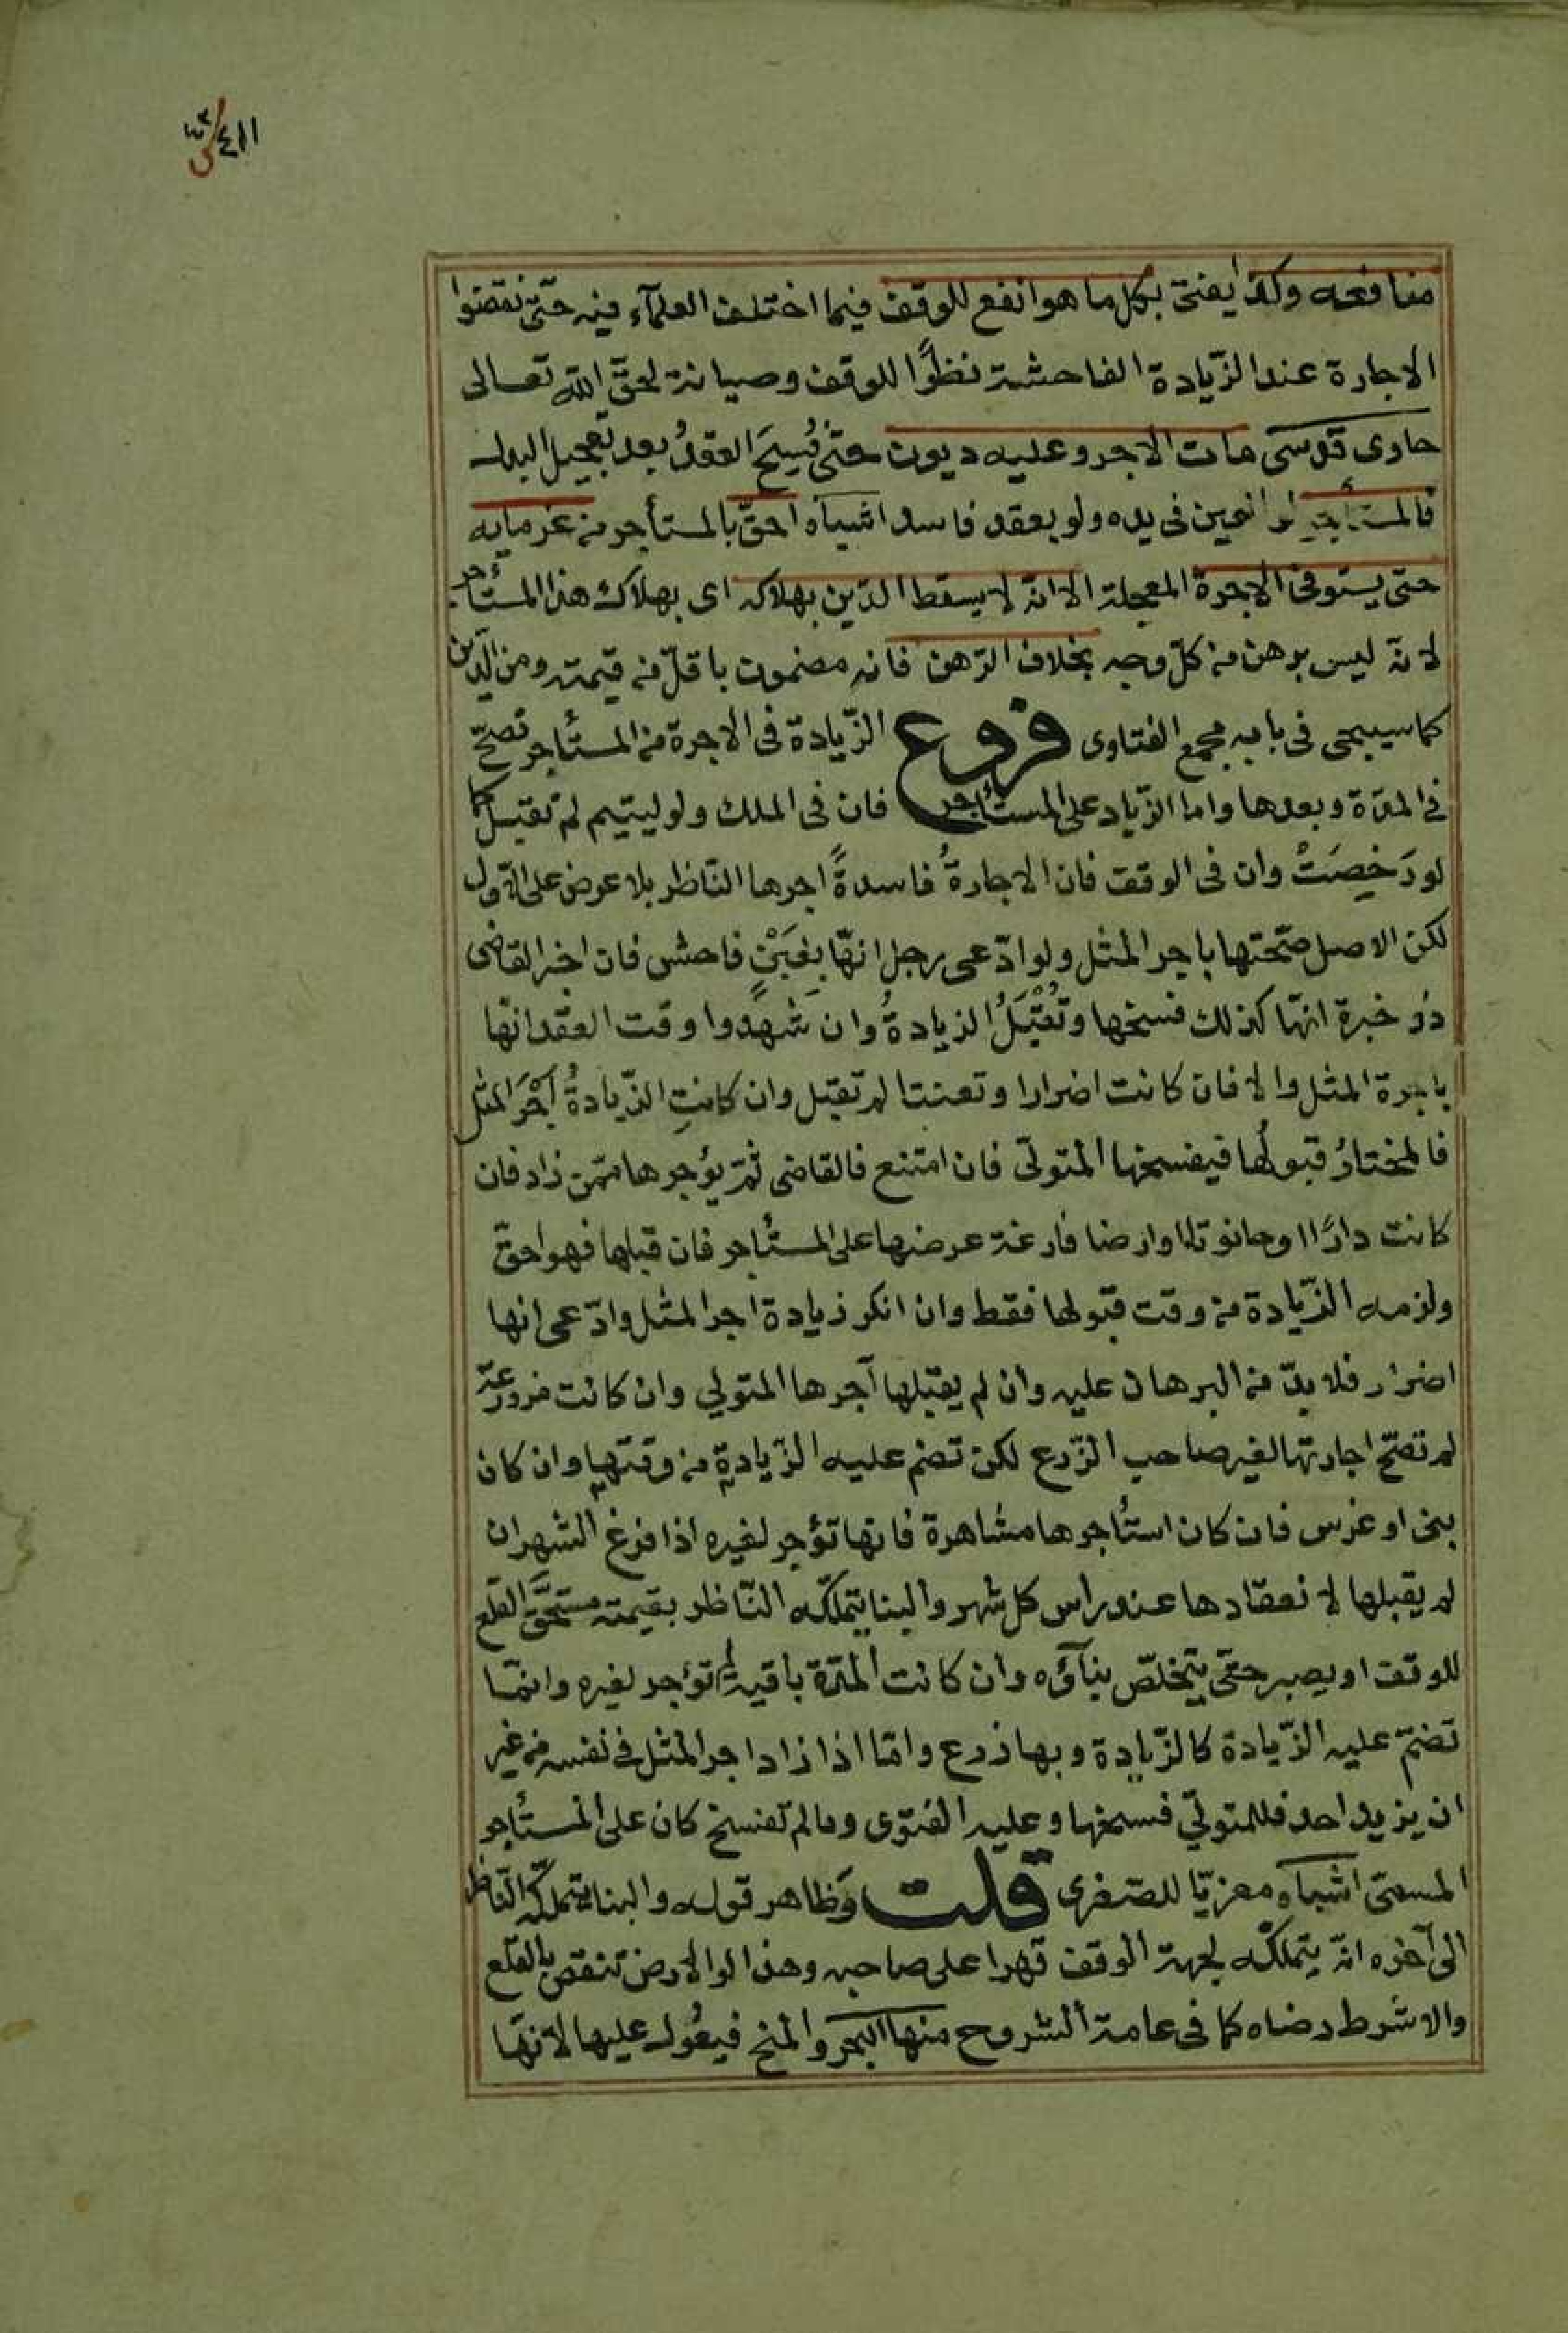 ٤١١
منافعه وكذا يفتى بكل ما هو انفع للوقف فيما اختلف العلمآء فيه حتى نقضوا
الاجارة عند الزّيادة الفاحشة نظرًا للوقف وصيانة لحقّ الله تعالى
حاوى قدسى مات الاجر وعليه ديون حتى فُسِخَ العقدُ بعد تعجيل البدل
فالمستأجر لو العين فى يده ولو بعقد فاسد اشباه احقّ بالمستأجر من غرمايه
حتى يستوفى الاجرة المعجلة الا انّه لا يسقط الدّين بهلاكه اى بهلاك هذا المستأجر
لانّه ليس برهن من كلّ وجه بخلاف الرّهن فانه مضمون باقلّ من قيمته ومن الدّين
كما سيجى فى بابه مجمع الفتاوى فروع الزّيادة فى الاجرة من المستأجر تصحّ
فى المدّة وبعدها واما الزّياد على المستأجر فان فى الملك ولو ليتيم لم تقبل كما
لو رَخِصَتْ وان فى الوقف فان الاجارةُ فاسدةً اجرها النّاظر بلا عرض على الاوّل
لكن الاصل صحّتها باجر المثل ولو ادّعى رجل انّها بِغَبَنٍ فاحش فان اخبر القاضى
ذو خبرة انّها كذلك فسخها وتُقْبَلُ الزيادةُ وان شَهِدوا وقت العقد انّها
باجرة المثل والا فان كانت اضرارا وتعنتا لم تقبل وان كانتِ الزّيادةُ اَجْرَ المثل
فالمختارُ قبولُها فيفسخها المتولّى فان امتنع فالقاضى ثمّ يؤجرها ممّن زاد فان
كانت دارًا او حانوتا او ارضا فارغة عرضها على المستأجر فان قبلها فهو احقّ
ولزمه الزّيادة من وقت قبولها فقط وان انكر زيادة اجر المثل وادّعى انها
اضرار فلا بدّ من البرهان عليه وان لم يقبلها آجرها المتولي وان كانت مزروعة
لم تصحّ اجارتها لغير صاحب الزّرع لكن تضم عليه الزّيادة من وقتها وان كان
بنى او غرس فان كان استأجرها مشاهرة فانها تؤجر لغيره اذا فرغ الشهر ان
لم يقبلها لانعقادها عند رأس كل شهر والبنا يتملّكه النّاظر بقيمته مستحقّ القلع
للوقف او يصبر حتى يتخلّص بنآؤه وان كانت المدّة باقية لم تؤجر لغيره وانّما
تضمّ عليه الزّيادة كالزّيادة وبها زرع وامّا اذا زاد اجر المثل فى نفسه من غير
ان يزيد احد فللمتولّي فسخها وعليه الفتوى وما لم تفسخ كان على المستأجر
المسمّى اشباه معزيّا للصّغرى قلت وظاهر قوله والبنا يتملّكه النّاظر
الى آخره انّه يتملّكه لجهة الوقف قهرا على صاحبه وهذا لو الارض تنقص بالقلع
والا شرط رضاه كما فى عامة الشروح منها البحر والمنح فيعُول عليها لانّها